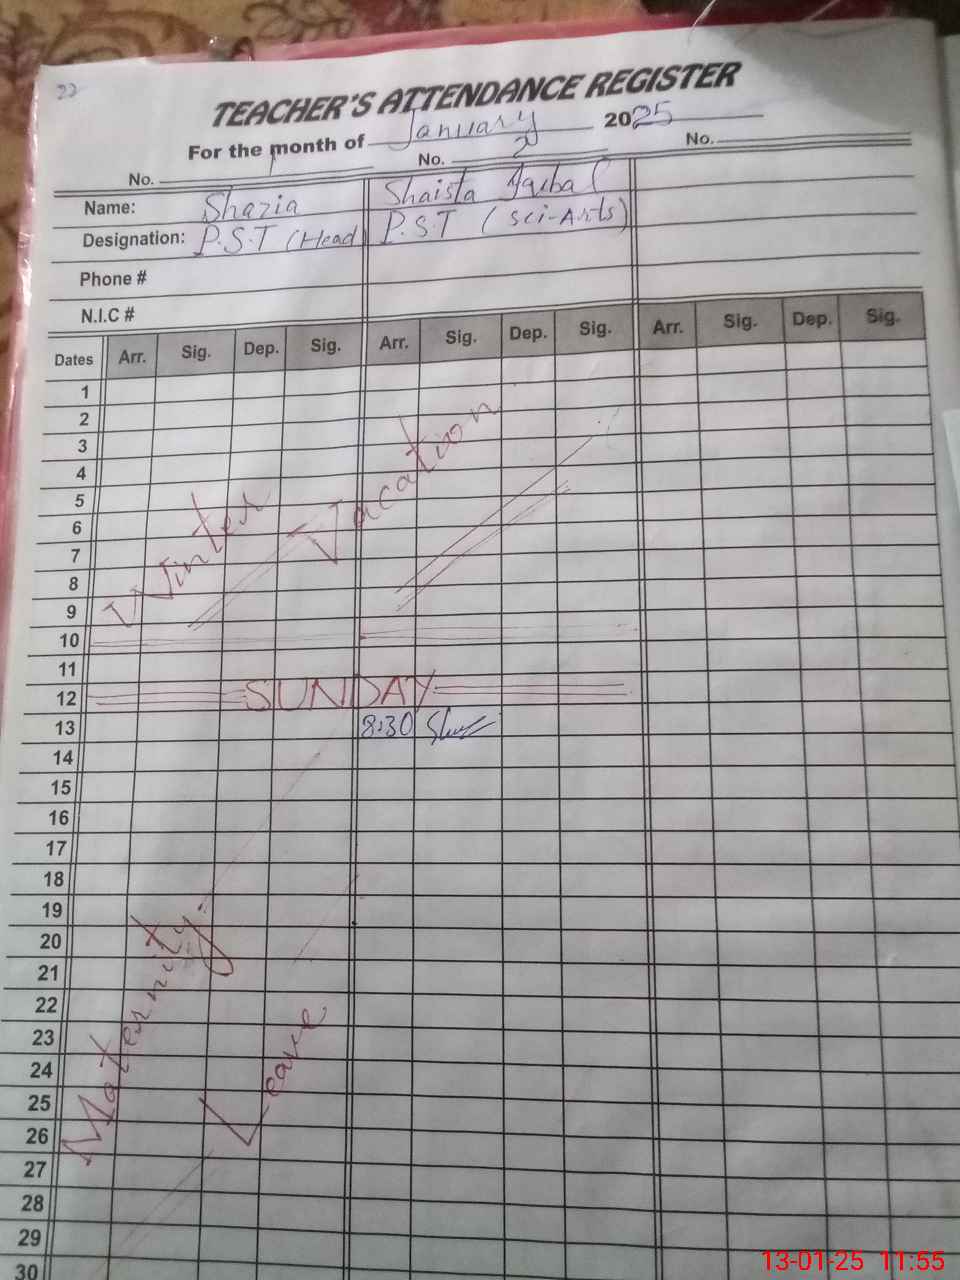 22
TEACHER'S ATTENDANCE REGISTER
For the month of January 2025
No. 1 No. 2 No.
Name: Shazia Shaista Iqbal
Designation: P.S.T (Head) P.S.T (Sci-Arts)
Phone #
N.I.C #
Dates Arr. Sig. Dep. Sig. Arr. Sig. Dep. Sig. Arr. Sig. Dep. Sig.
1
2
3
4
5
6
7
8
9
Winter Vacation
10
11
12 SUNDAY
13 8:30
14
15
16
17
18
19
20
21
22
23
24
25
26
Maternity Leave
27
28
29
30
13-01-25 11:55